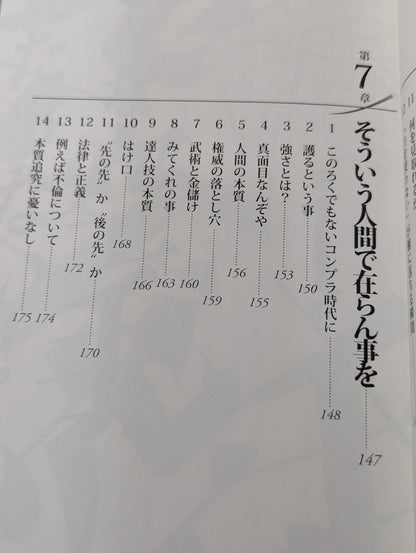 第7章 そういう人間で在らん事を……147
1 このろくでもないコンプラ時代に……148
2 護るという事……150
3 強さとは?……153
4 真面目なんぞや……155
5 人間の本質……156
6 権威の落とし穴……159
7 武術と金儲け……160
8 みてくれの事……163
9 達人技の本質……166
10 はけ口……168
11 “先の先”か“後の先”か……170
12 法律と正義……172
13 例えば不倫について……174
14 本質追究に憂いなし……175